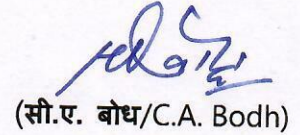 (सी.ए. बोध/C.A. Bodh)